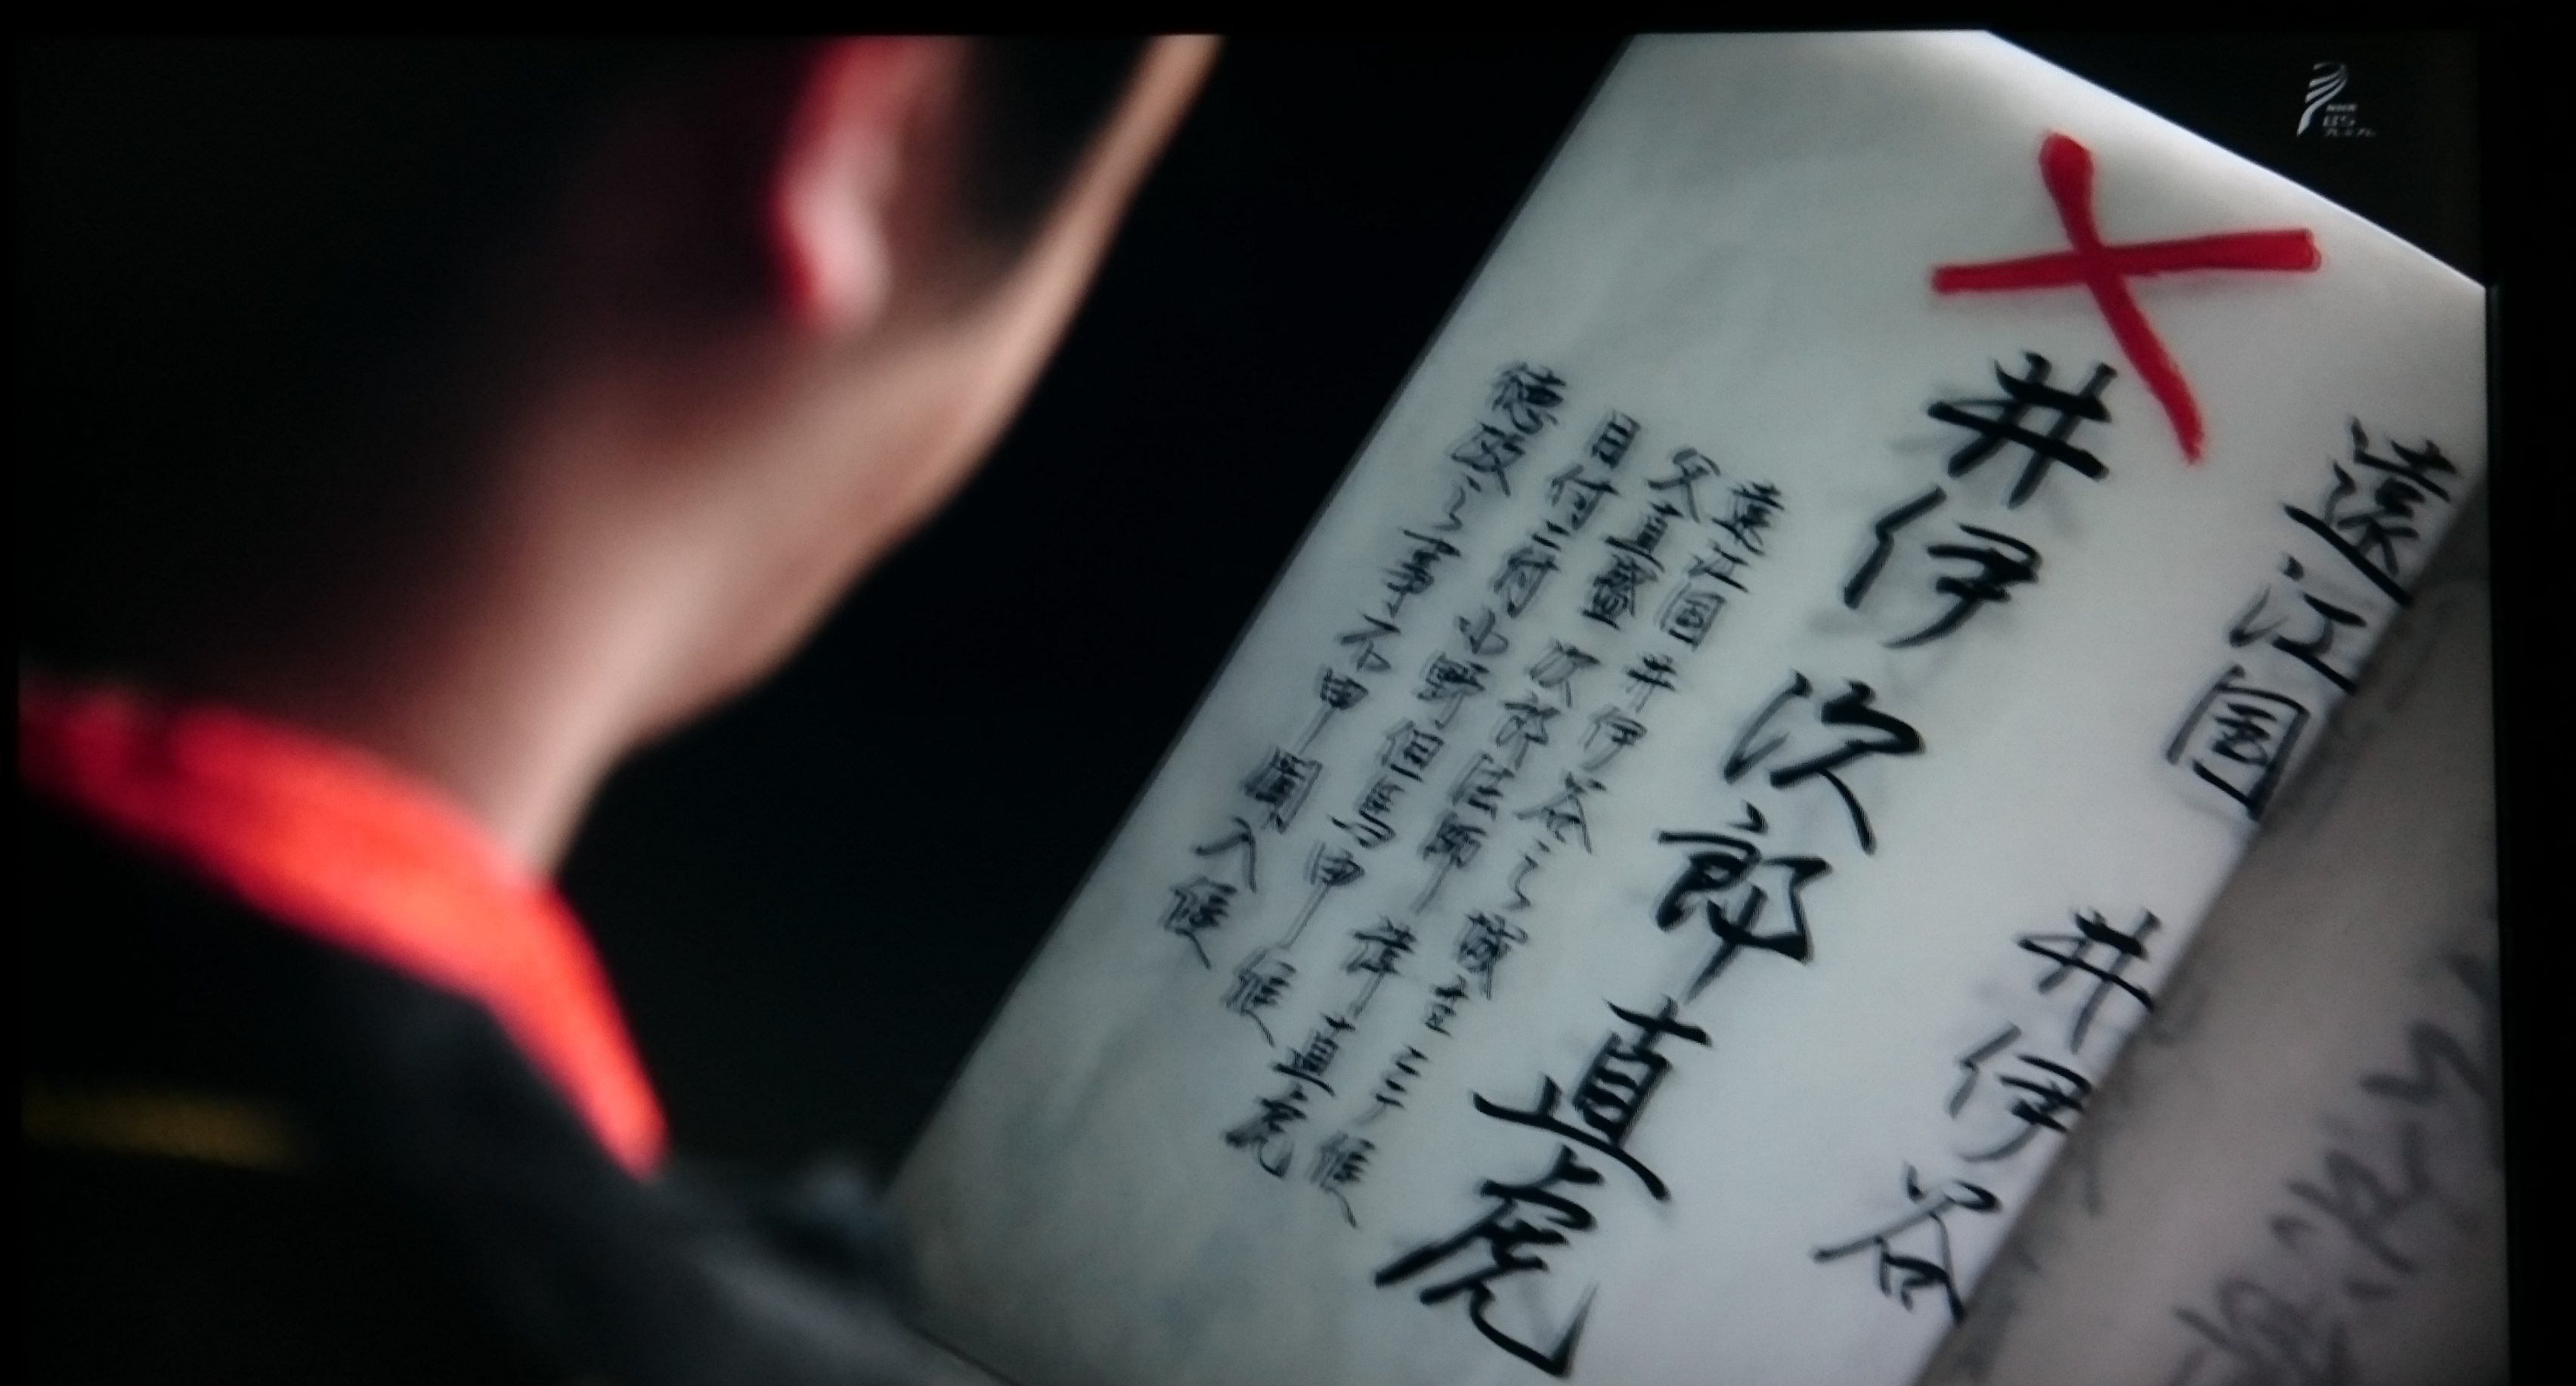 遠江國 井伊谷
井伊次郎直虎
遠江国井伊谷之城主ニテ候
父直盛 次郎法師 諱直虎
目付ニ付小野但馬申候
徳政之事不申聞入候
NHK
BS
プレミアム